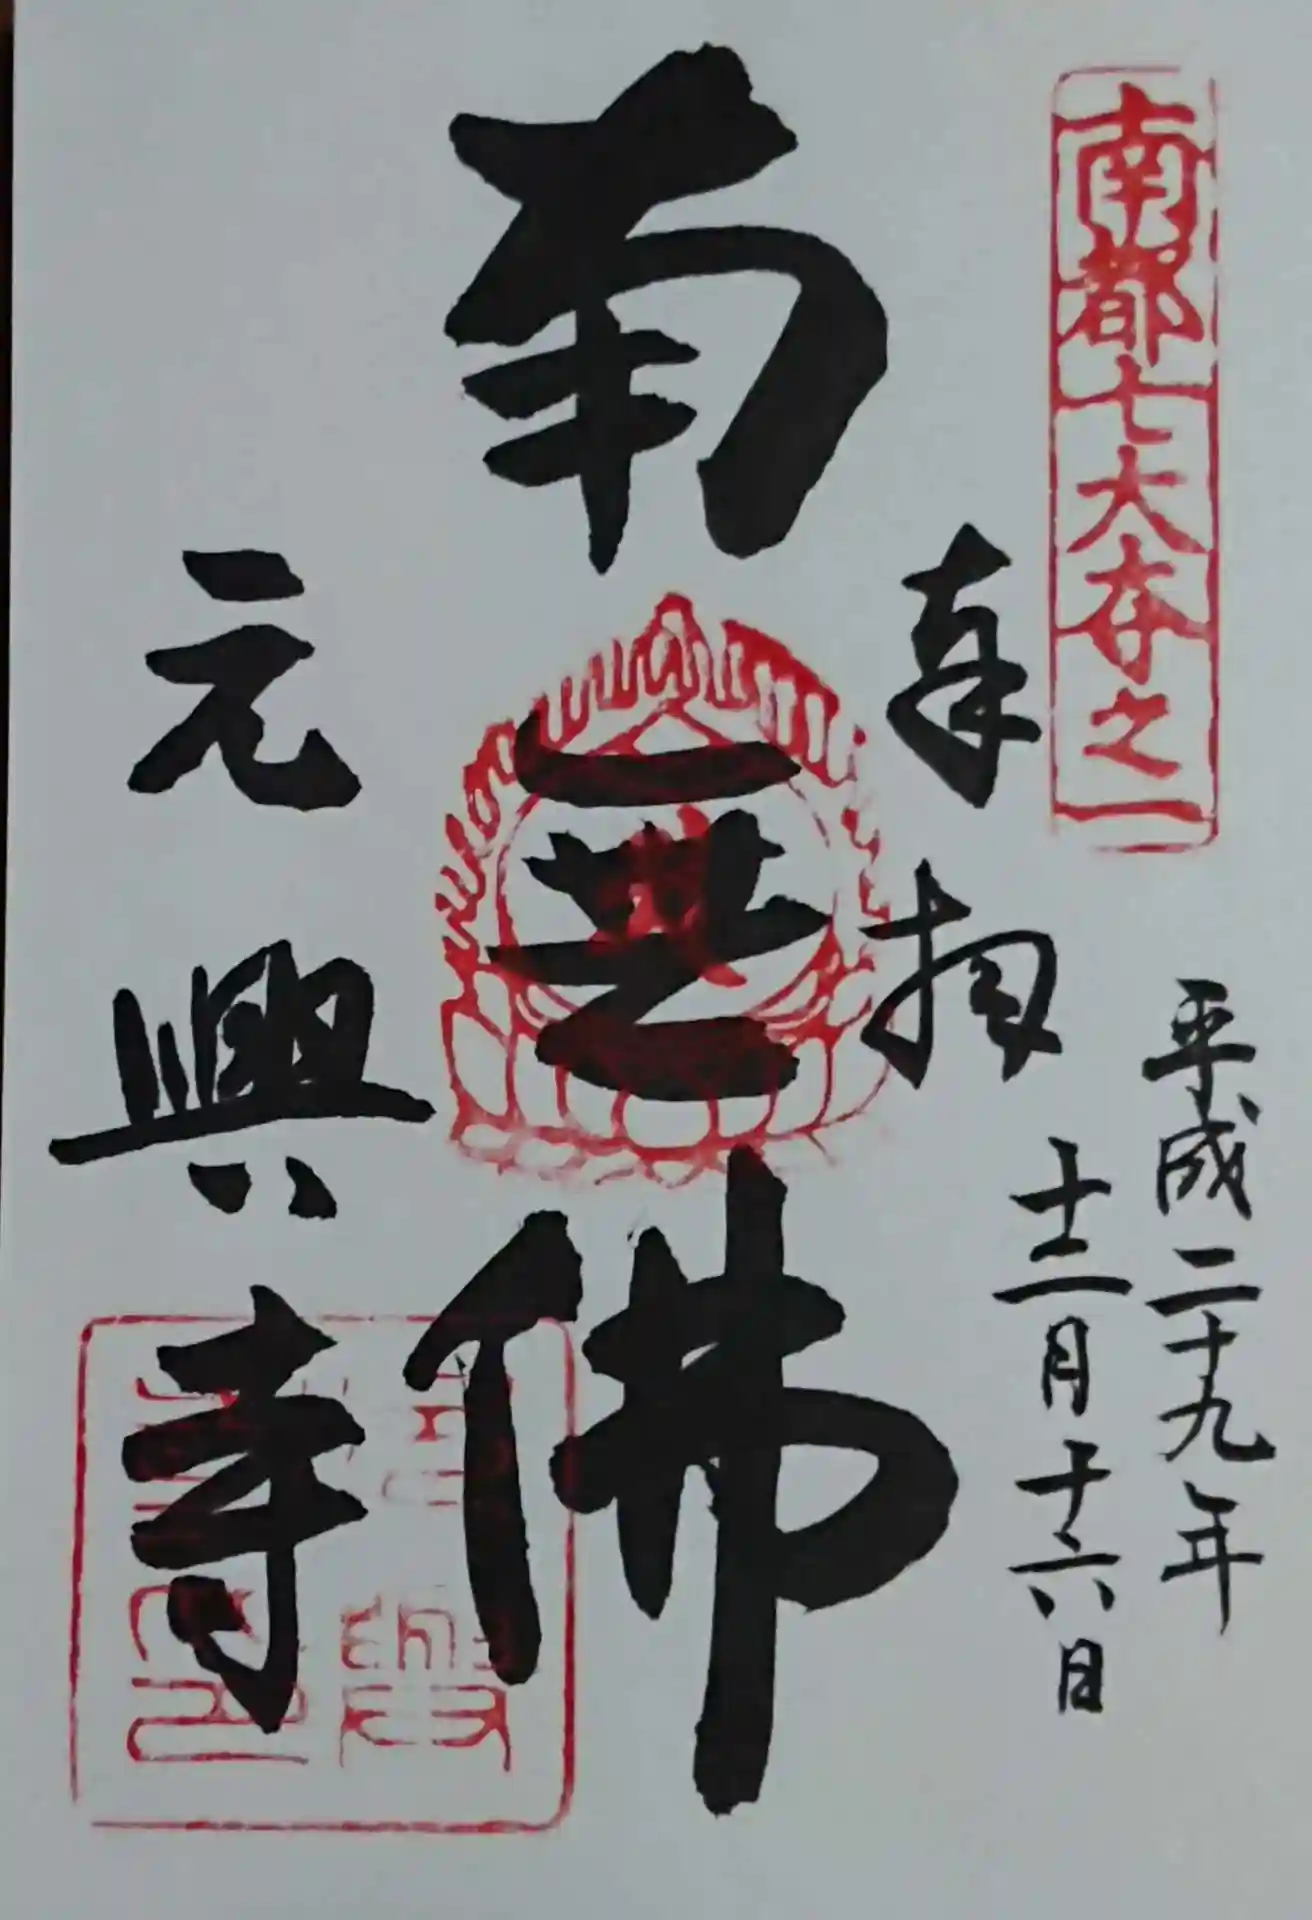 南都七大寺之一
平成二十九年
十二月十六日
奉拝
南無佛
元興寺